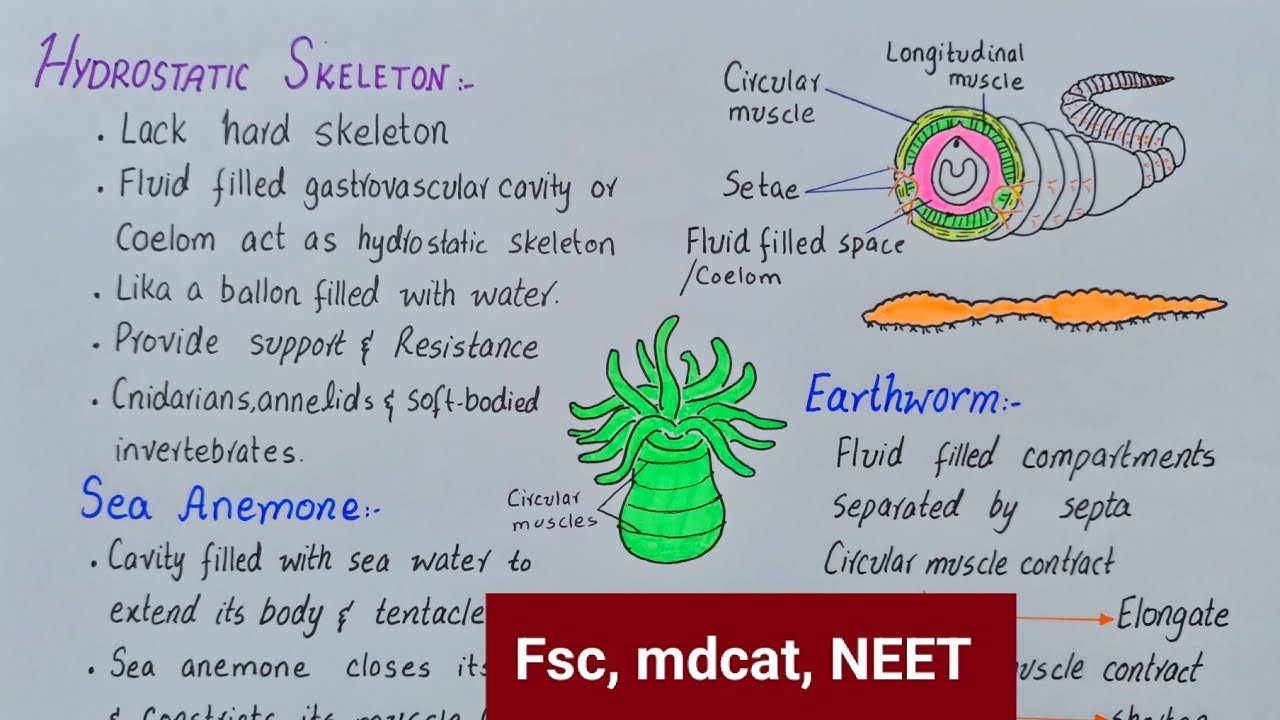 HYDROSTATIC SKELETON:-
. Lack hard skeleton
. Fluid filled gastrovascular cavity or
Coelom act as hydrostatic skeleton
. Lika a ballon filled with water.
. Provide support & Resistance
. Cnidarians, annelids & soft-bodied
invertebrates.
Sea Anemone:-
. Cavity filled with sea water to
extend its body & tentacle
. Sea anemone closes its
& constricts its muscle
Circular
muscles
Circular
muscle
Longitudinal
muscle
Setae
Fluid filled space
/Coelom
Earthworm:-
Fluid filled compartments
separated by septa
Circular muscle contract
Elongate
muscle contract
shorten
Fsc, mdcat, NEET